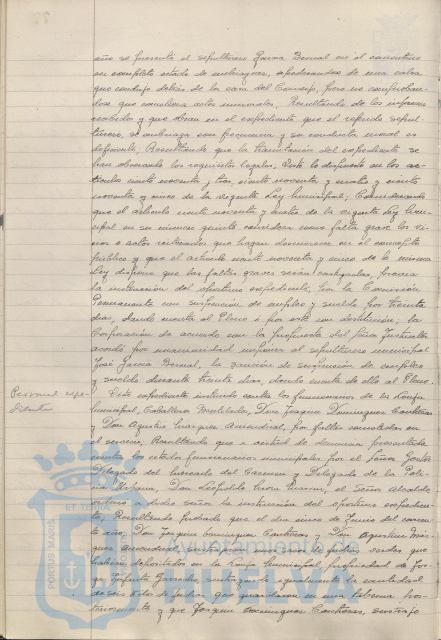 año se presentó el sepulturero García Bernal en el cementerio
en completo estado de embriaguez, apoderándose de una cabra
que condujo detrás de la casa del Conserje, pero no comprobán-
dose que cometiera actos inmorales, Resultando de los informes
recibidos y que obran en el expediente que el referido sepul-
turero, se embriaga con frecuencia y su conducta moral es
deficiente, Resultando que la tramitación del expediente se
han observado los requisitos legales, Visto lo dispuesto en los ar-
tículos ciento noventa y tres, ciento noventa y cuatro y ciento
noventa y cinco de la vigente Ley Municipal; Considerando
que el artículo ciento noventa y cuatro de la vigente Ley Muni-
cipal en su número quinto considera como falta grave los vi-
cios o actos reiterados que hagan desmerecer en el concepto
público y que el artículo ciento noventa y cinco de la misma
Ley dispone que las faltas graves serán castigadas, previa
la instrucción del oportuno expediente, por la Comisión
Permanente con suspensión de empleo y sueldo por treinta
días, dando cuenta al Pleno o por este con destitución, la
Corporación de acuerdo con la propuesta del Señor Instructor
acordó por unanimidad imponer al sepulturero municipal
José García Bernal, la sanción de suspensión de empleo
y sueldo durante treinta días, dando cuenta de ello al Pleno.
Personal expe-
diente
Visto expediente instruido contra los funcionarios de la Lonja
Municipal, Caballero Mutilado, Don Joaquín Domínguez Contreras
y Don Agustín Márquez Amandial, por faltas cometidas en
el servicio, Resultando que a virtud de denuncia presentada
contra los citados funcionarios municipales por el Señor Gestor
Delegado del Mercado del Carmen y Delegado de la Poli-
cía Urbana, Don Leopoldo Mora, el Señor Alcalde
ordenó a dicho señor la instrucción del oportuno expedien-
te; Resultando probado que el día cinco de Junio del corrien-
te año, Don Joaquín Domínguez Contreras y Don Agustín Már-
quez Amandial, sustrajeron unos kilos de judías verdes que
habían depositados en la Lonja Municipal, propiedad de Jor-
ge Infante Garrido, sustrayendo igualmente la cantidad
de seis kilos de judías que guardaron en una taberna pos-
teriormente y que Joaquín Domínguez Contreras, sustrajo
PORTUS MARIS
ET TERRAE
Ayuntamiento de
HUELVA